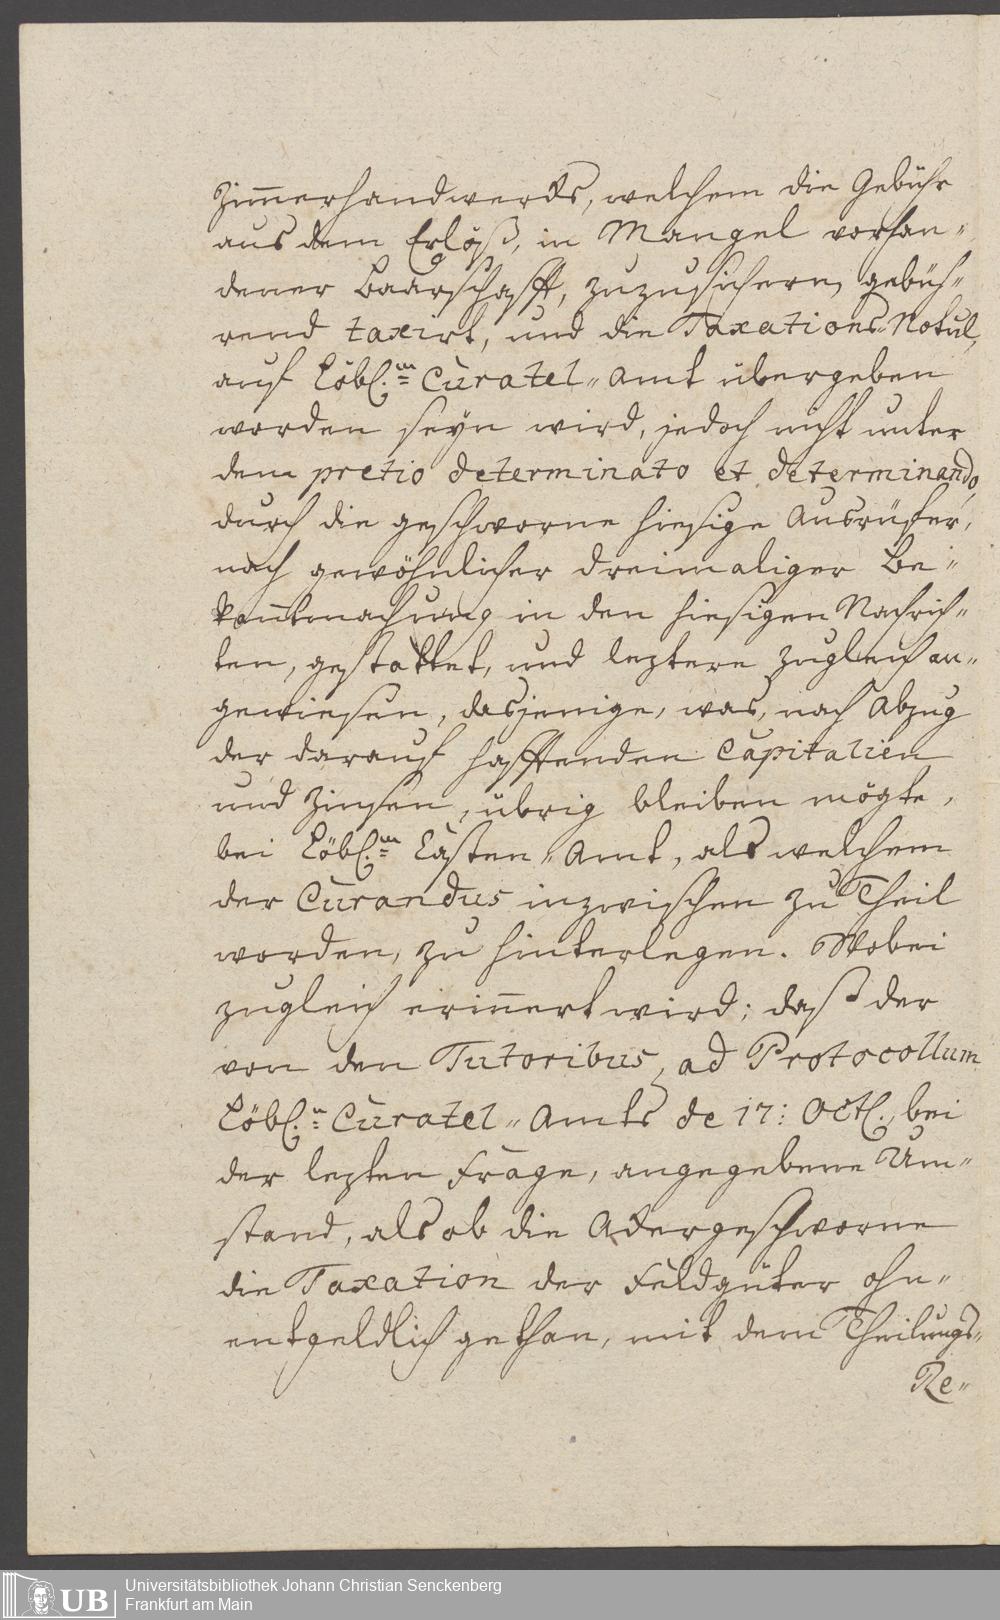 Zim̅erhandwercks, welchem die Gebühr
aus dem Erlöß, in Mangel vorhan„
dener Baarschafft, zuzusichern, gebüh„
rend taxirt, und die Taxations-Notul,
auf Löbl.m Curatel„Amt übergeben
worden seyn wird, jedoch nicht unter
dem pretio determinato et determinando,
durch die geschworne hiesige Ausrüfer,
nach gewöhnlicher dreimaliger Be„
kan̅tmachung in den hiesigen Nachrich„
ten, gestattet, und leztere zugleich an„
gewiesen, dasjenige, was, nach Abzug
der darauf hafftenden Capitalien
und Zinsen, übrig bleiben mögte,
bei Löbl.m Casten„Amt, als welchem
der Curandus inzwischen zu Theil
worden, zu hinterlegen. Wobei
zugleich erin̅ert wird; daß der
von den Tutoribus, ad Protocollum
Löbl.n Curatel„Amts de 17: Oct., bei
der lezten Frage, angegebene Um„
stand, als ob die Ackergeschworne
die Taxation der Feldgüter ohn„
entgeldlich gethan, mit dem Theilungs„
Re„
UB
Universitätsbibliothek Johann Christian Senckenberg
Frankfurt am Main